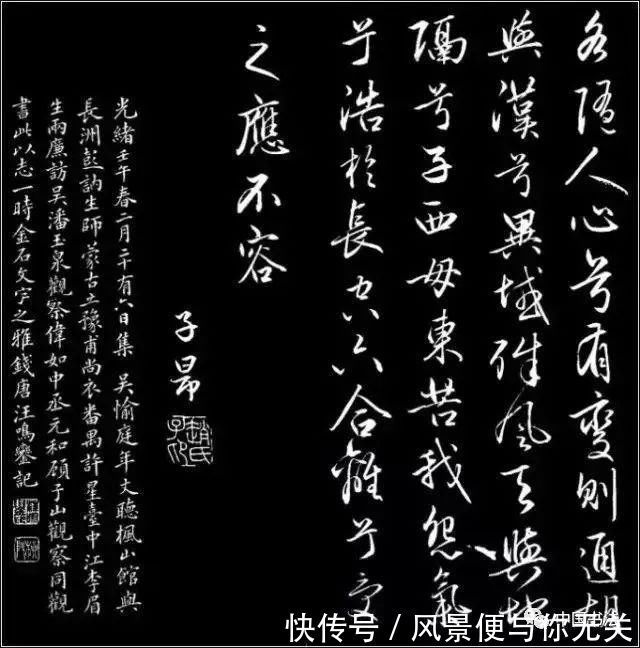 各随人心兮有变则通胡
與漢兮異域殊風天與地
隔兮子西母東苦我怨氣
兮浩於長空六合離兮受
之應不容
子昂
趙氏子昂
光緒壬午春二月二十有六日集吳愉庭年丈聽楓山館與
長洲彭訥生師蒙古立豫甫尚衣番禺許星臺中江李眉
生兩廉訪吳潘玉泉觀察偉如中丞元和顧子山觀察同觀
書此以志一時金石文字之雅錢唐汪鳴鑾記
中国书法
快传号 / 风景便与你无关